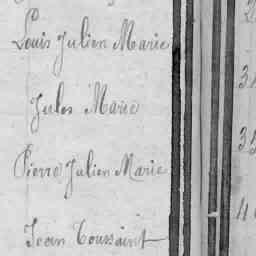 Louis Julien Marie
Jules Marie
Pierre Julien Marie
Jean Toussaint